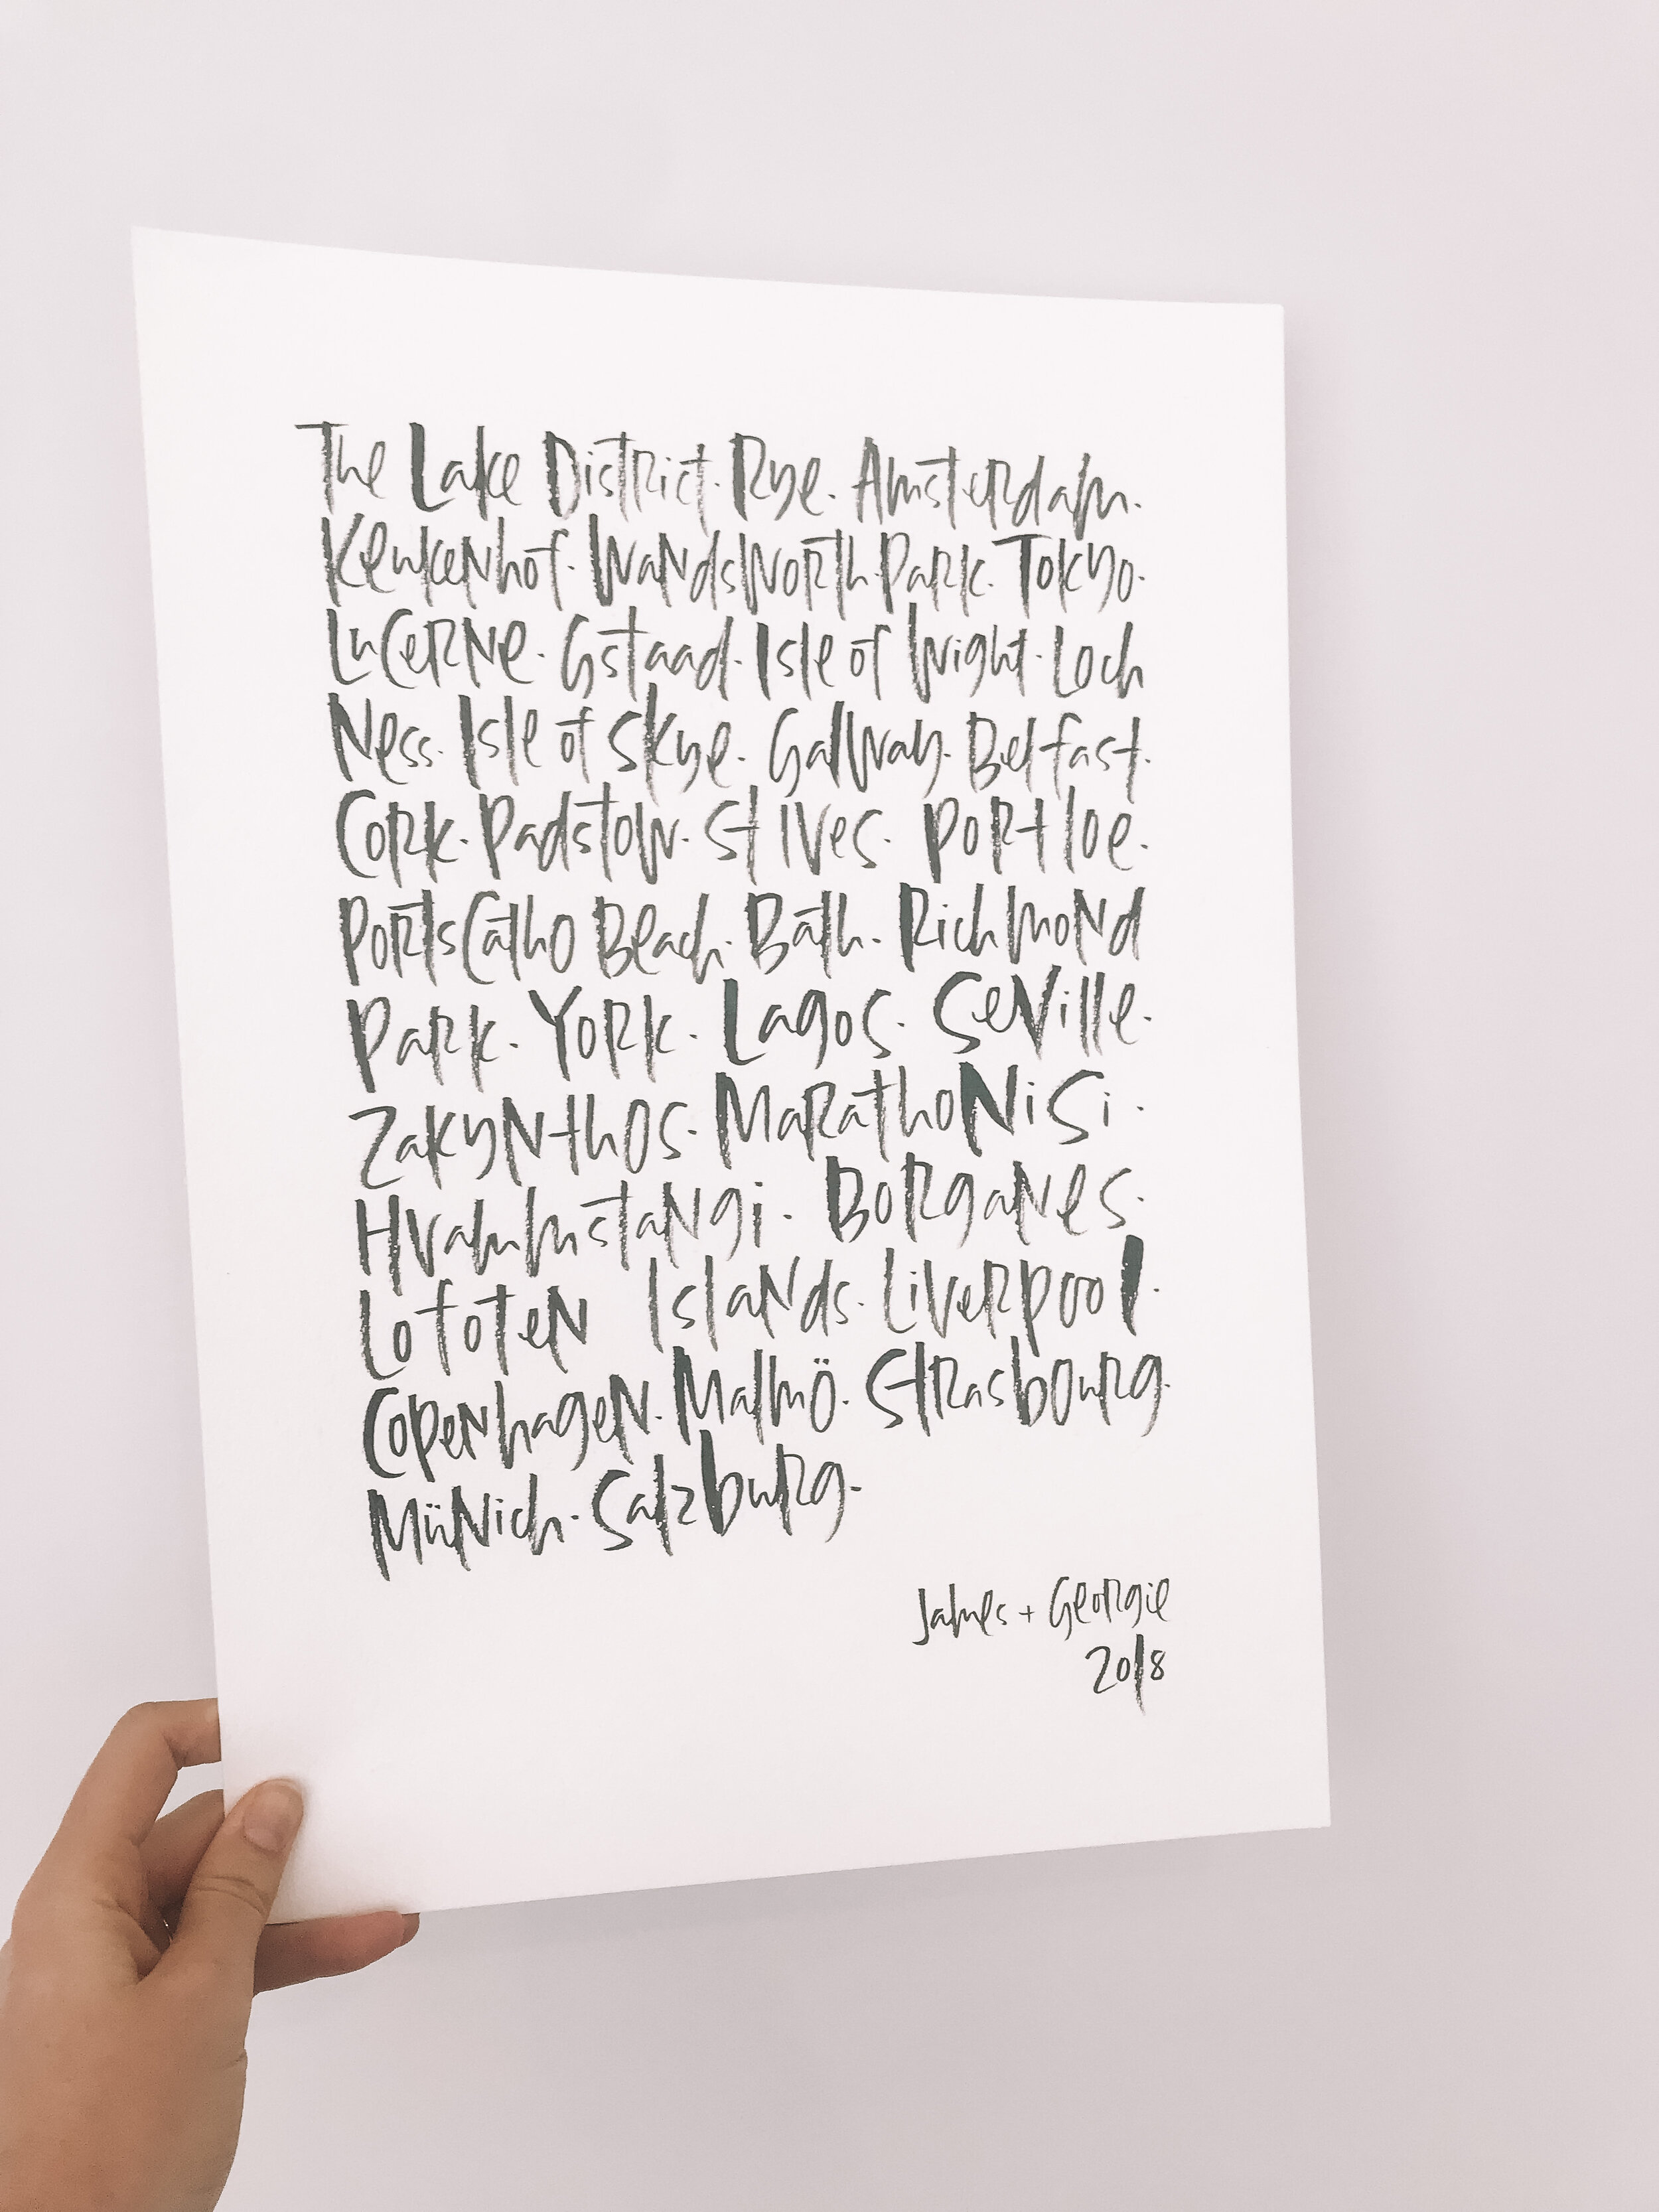 The Lake District. Rye. Amsterdam.
Keukenhof. Wandsworth Park. Tokyo.
Lucerne. Gstaad. Isle of Wight. Loch
Ness. Isle of Skye. Galway. Belfast.
Cork. Padstow. St Ives. Portloe.
Portscatho Beach. Bath. Richmond
Park. York. Lagos. Seville.
Zakynthos. Marathonisi.
Hvammstangi. Borganes.
Lofoten Islands. Liverpool.
Copenhagen. Malmö. Strasbourg.
Münich. Salzburg.
James + Georgie
2018